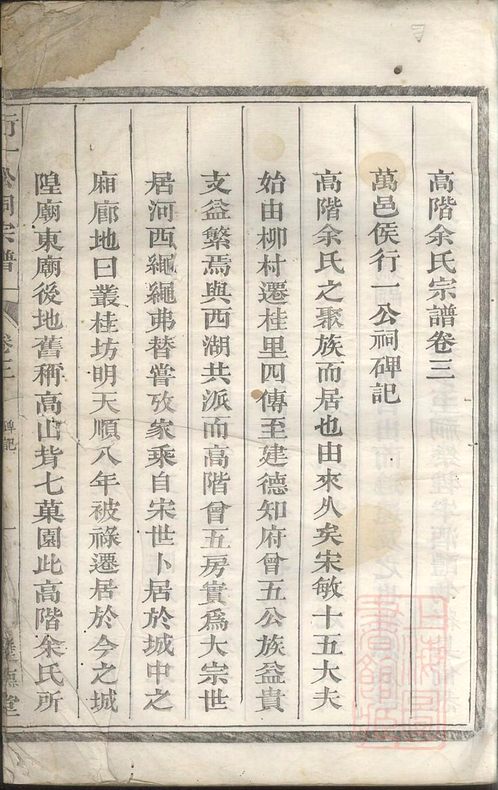 高階余氏宗譜卷三
萬邑侯行一公祠碑記
高階余氏之聚族而居也由來久矣宋敏十五大夫
始由柳村遷桂里四傳至建德知府曾五公族益貴
支益繁焉與西湖共派而高階曾五房實爲大宗世
居河西繩繩弗替嘗攷家乘自宋世卜居於城中之
廂廊地曰叢桂坊明天順八年被祿遷居於今之城
隍廟東廟後地舊稱高山背七菓園此高階余氏所
行一公祠宗譜 卷三 碑記 一 堂
上海圖書館藏